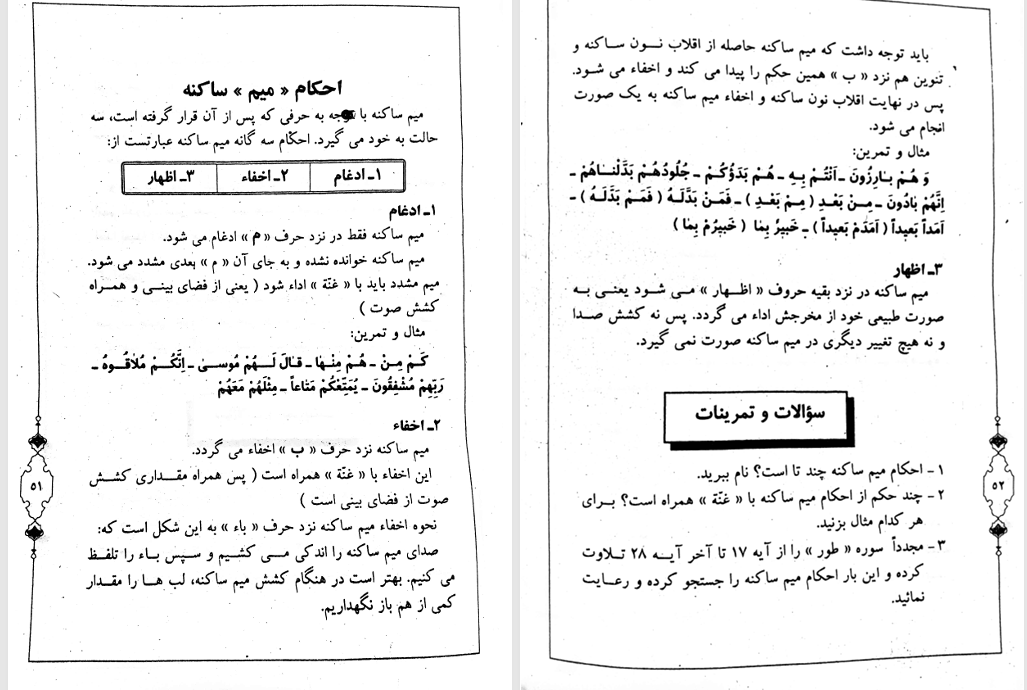 احکام « میم » ساکنه
میم ساکنه با توجه به حرفی که پس از آن قرار گرفته است، سه
حالت به خود می گیرد. احکام سه گانه میم ساکنه عبارتست از:
۱ـ ادغام ۲ـ اخفاء ۳ـ اظهار
۱ـ ادغام
میم ساکنه فقط در نزد حرف « م » ادغام می شود.
میم ساکنه خوانده نشده و به جای آن « م » بعدی مشدد می شود.
میم مشدد باید با « غنّة » اداء شود ( یعنی از فضای بینـی و همـراه
کشش صوت )
مثال و تمرین:
كَـمْ مِـنْ ـ هُـمْ مِنْـهٰا ـ قـالَ لَـهُـمْ مُوسـىٰ ـ اِنَّكُـمْ مُلاٰقُـوهُ ـ
رَبِّهِمْ مُشْفِقُونَ ـ يُمَتِّعْكُمْ مَتٰاعاً ـ مِثْلَهُمْ مَعَهُمْ
۲ـ اخفاء
میم ساکنه نزد حرف « ب » اخفاء می گردد.
این اخفاء با « غنّة » همراه است ( پس همراه مقـداری کشـش
صوت از فضای بینی است )
نحوه اخفاء میم ساکنه نزد حرف « باء » به این شکل است که:
صدای میم ساکنه را اندکی مـی کشـیم و سـپس بـاء را تلفـظ
می کنیم. بهتر است در هنگام کشش میم ساکنه، لب هـا را مقـدار
کمی از هم باز نگهداریم.
۵۱
باید توجه داشت که میم ساکنه حاصله از اقلاب نـون سـاکنه و
تنوین هم نزد « ب » همین حکم را پیدا می کند و اخفاء می شود.
پس در نهایت اقلاب نون ساکنه و اخفاء میم ساکنه به یک صورت
انجام می شود.
مثال و تمرین:
وَ هُـمْ بـٰارِزُونَ ـ اَنْتُـمْ بِـهِ ـ هُـمْ بَدَؤُكُـمْ ـ جُلُودُهُـمْ بَدَّلْنـٰاهُمْ ـ
اِنَّهُمْ بٰادُونَ ـ مِـنْ بَعْـدِ ( مِـمْ بَعْـدِ ) ـ فَمَـنْ بَدَّلَـهُ ( فَمَـمْ بَدَّلَـهُ ) ـ
اَمَداً بَعيداً ( اَمَدَمْ بَعيداً ) ـ خَبيرٌ بِمٰا ( خَبيرُمْ بِمٰا )
۳ـ اظهار
میم ساکنه در نزد بقیه حروف « اظـهار » مـی شـود یعنـی بـه
صورت طبیعی خود از مخرجش اداء می گردد. پس نه کشش صـدا
و نه هیچ تغییر دیگری در میم ساکنه صورت نمی گیرد.
سؤالات و تمرینات
۱ - احکام میم ساکنه چند تا است؟ نام ببرید.
۲ - چند حکم از احکام میم ساکنه با « غنّة » همراه است؟ بـرای
هر کدام مثال بزنید.
۳ - مجدداً سوره « طور » را از آیه ۱۷ تا آخر آیـه ۲۸ تـلاوت
کرده و این بار احکام میم ساکنه را جستجو کرده و رعـایت
نمائید.
۵۲